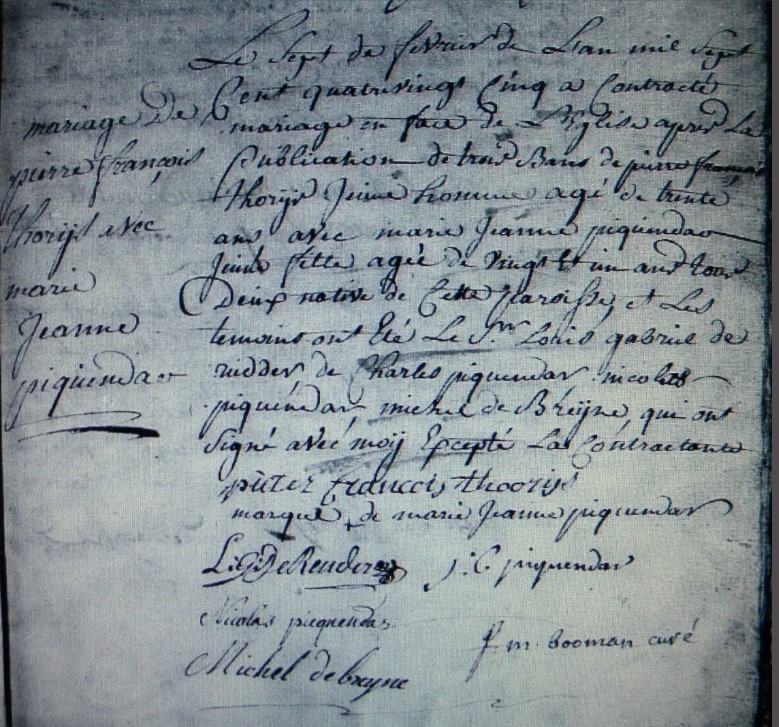 mariage De
pierre françois
thorijs avec
marie
Jeanne
piquendar
Le Sept de fevrier de L'an mil Sept
Cent quatrevingt Cinq a Contracté
mariage en face de L'Eglise après La
Publication de trois Bans de pierre françois
thorijs Jeune homme agé de trente
ans avec marie Jeanne piquendar
Jeune fille agée de vingt et un ans tous
Deux native de Cette paroisse, et Les
temoins ont été Le Sr. Louis gabriel de
ridder, de Charles piquendar nicolas
piquendar, michel de Breijne, qui ont
Signé avec moij Excepté La Contractante
pieter francois thoorijs
marque + de marie Jeanne piquendar
L.G. De Reuder
j. C. piquendar
Nicolas picquendar
f. m. booman curé
Michel debreyne